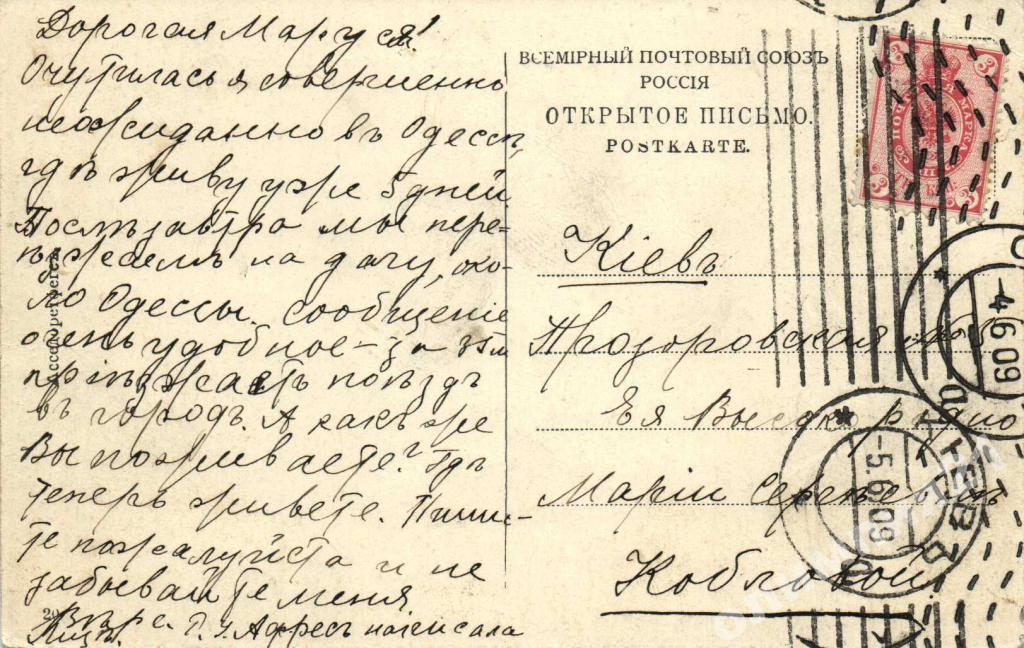 Дорогая Маруся!
Очутилась я совершенно
неожиданно въ Одессѣ,
гдѣ живу уже 5 дней
Послѣзавтра мы пере-
ѣзжаемъ на дачу, око-
ло Одессы. Сообщеніе
очень удобное – за
пріѣзжаетъ поѣздъ
въ городъ. А какъ же
Вы поживаете? Гдѣ
теперь живете. Пиши-
те пожалуйста и не
забывайте меня
Адресъ написала
ВСЕМІРНЫЙ ПОЧТОВЫЙ СОЮЗЪ
РОССІЯ
ОТКРЫТОЕ ПИСЬМО.
POSTKARTE.
Кіевъ
Прозоровская
Ея Высокородію
Маріи Сергѣевнѣ
Кобловой
МАРКА
3
3
3
-4.6.09
-5.6.09
КІЕВЪ